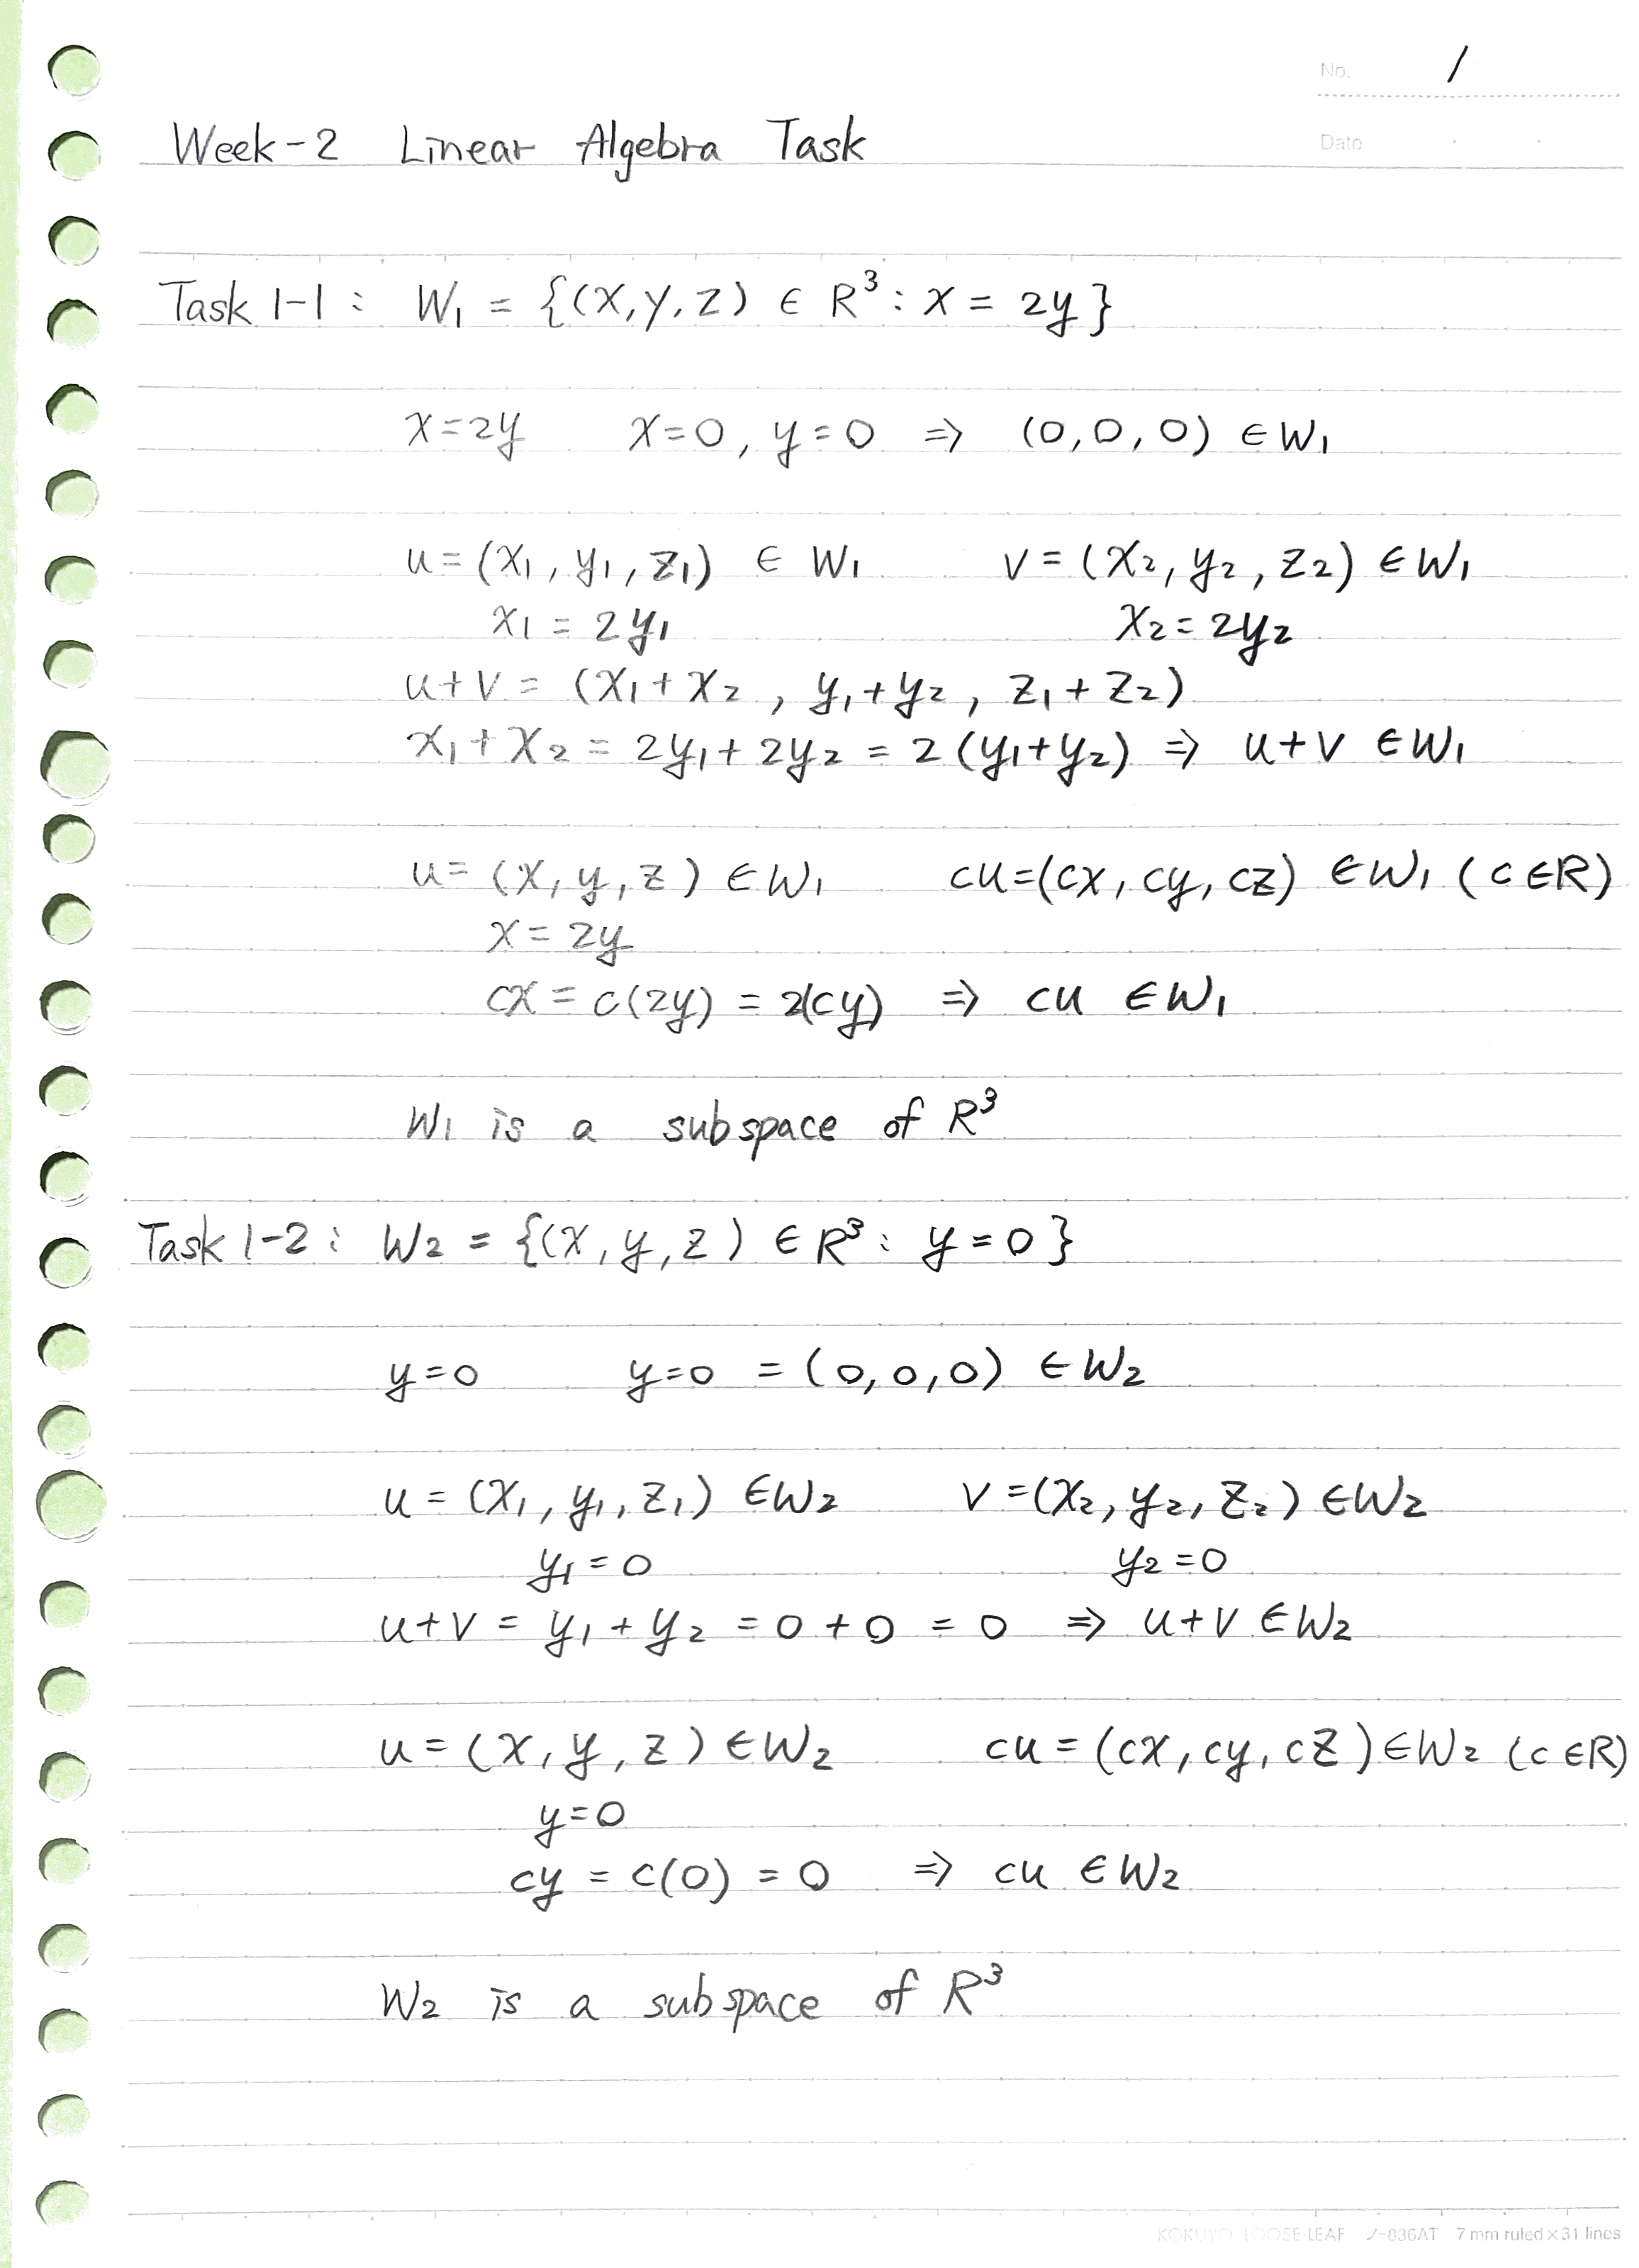 No. 1
Date
Week-2 Linear Algebra Task
Task 1-1 : W₁ = {(x, y, z) ∈ R³ : x = 2y}
x=2y x=0, y=0 ⇒ (0, 0, 0) ∈ W₁
u = (x₁, y₁, z₁) ∈ W₁ v = (x₂, y₂, z₂) ∈ W₁
x₁ = 2y₁ x₂ = 2y₂
u+v = (x₁+x₂, y₁+y₂, z₁+z₂)
x₁+x₂ = 2y₁+2y₂ = 2(y₁+y₂) ⇒ u+v ∈ W₁
u= (x, y, z) ∈ W₁ cu=(cx, cy, cz) ∈ W₁ (c ∈R)
x = 2y
cx = c(2y) = 2(cy) ⇒ cu ∈ W₁
W₁ is a subspace of R³
Task 1-2 : W₂ = {(x, y, z) ∈ R³ : y=0}
y=0 y=0 = (0, 0, 0) ∈ W₂
u = (x₁, y₁, z₁) ∈W₂ v =(x₂, y₂, z₂) ∈W₂
y₁ = 0 y₂ = 0
u+v = y₁ + y₂ = 0 + 0 = 0 ⇒ u+v ∈ W₂
u = (x, y, z) ∈ W₂ cu = (cx, cy, cz) ∈ W₂ (c ∈R)
y=0
cy = c(0) = 0 ⇒ cu ∈ W₂
W₂ is a subspace of R³
KOKUYO LOOSE-LEAF ノ-836AT 7 mm ruled×31 lines